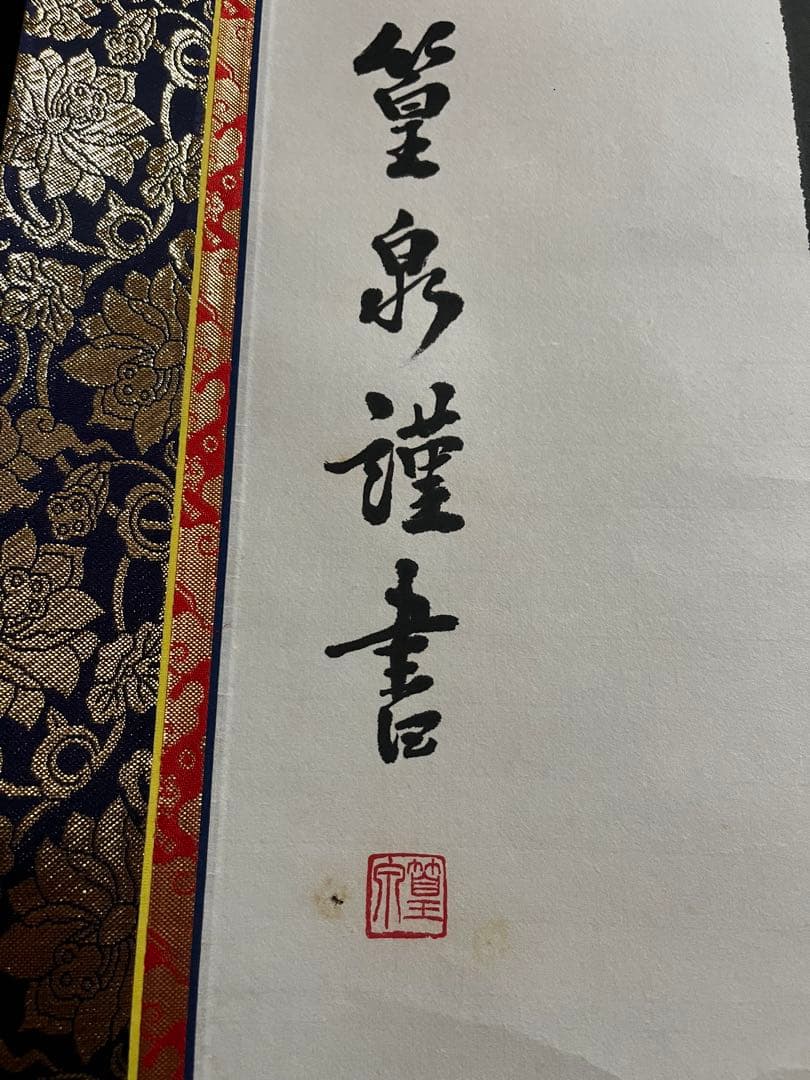 篁泉謹書
篁泉